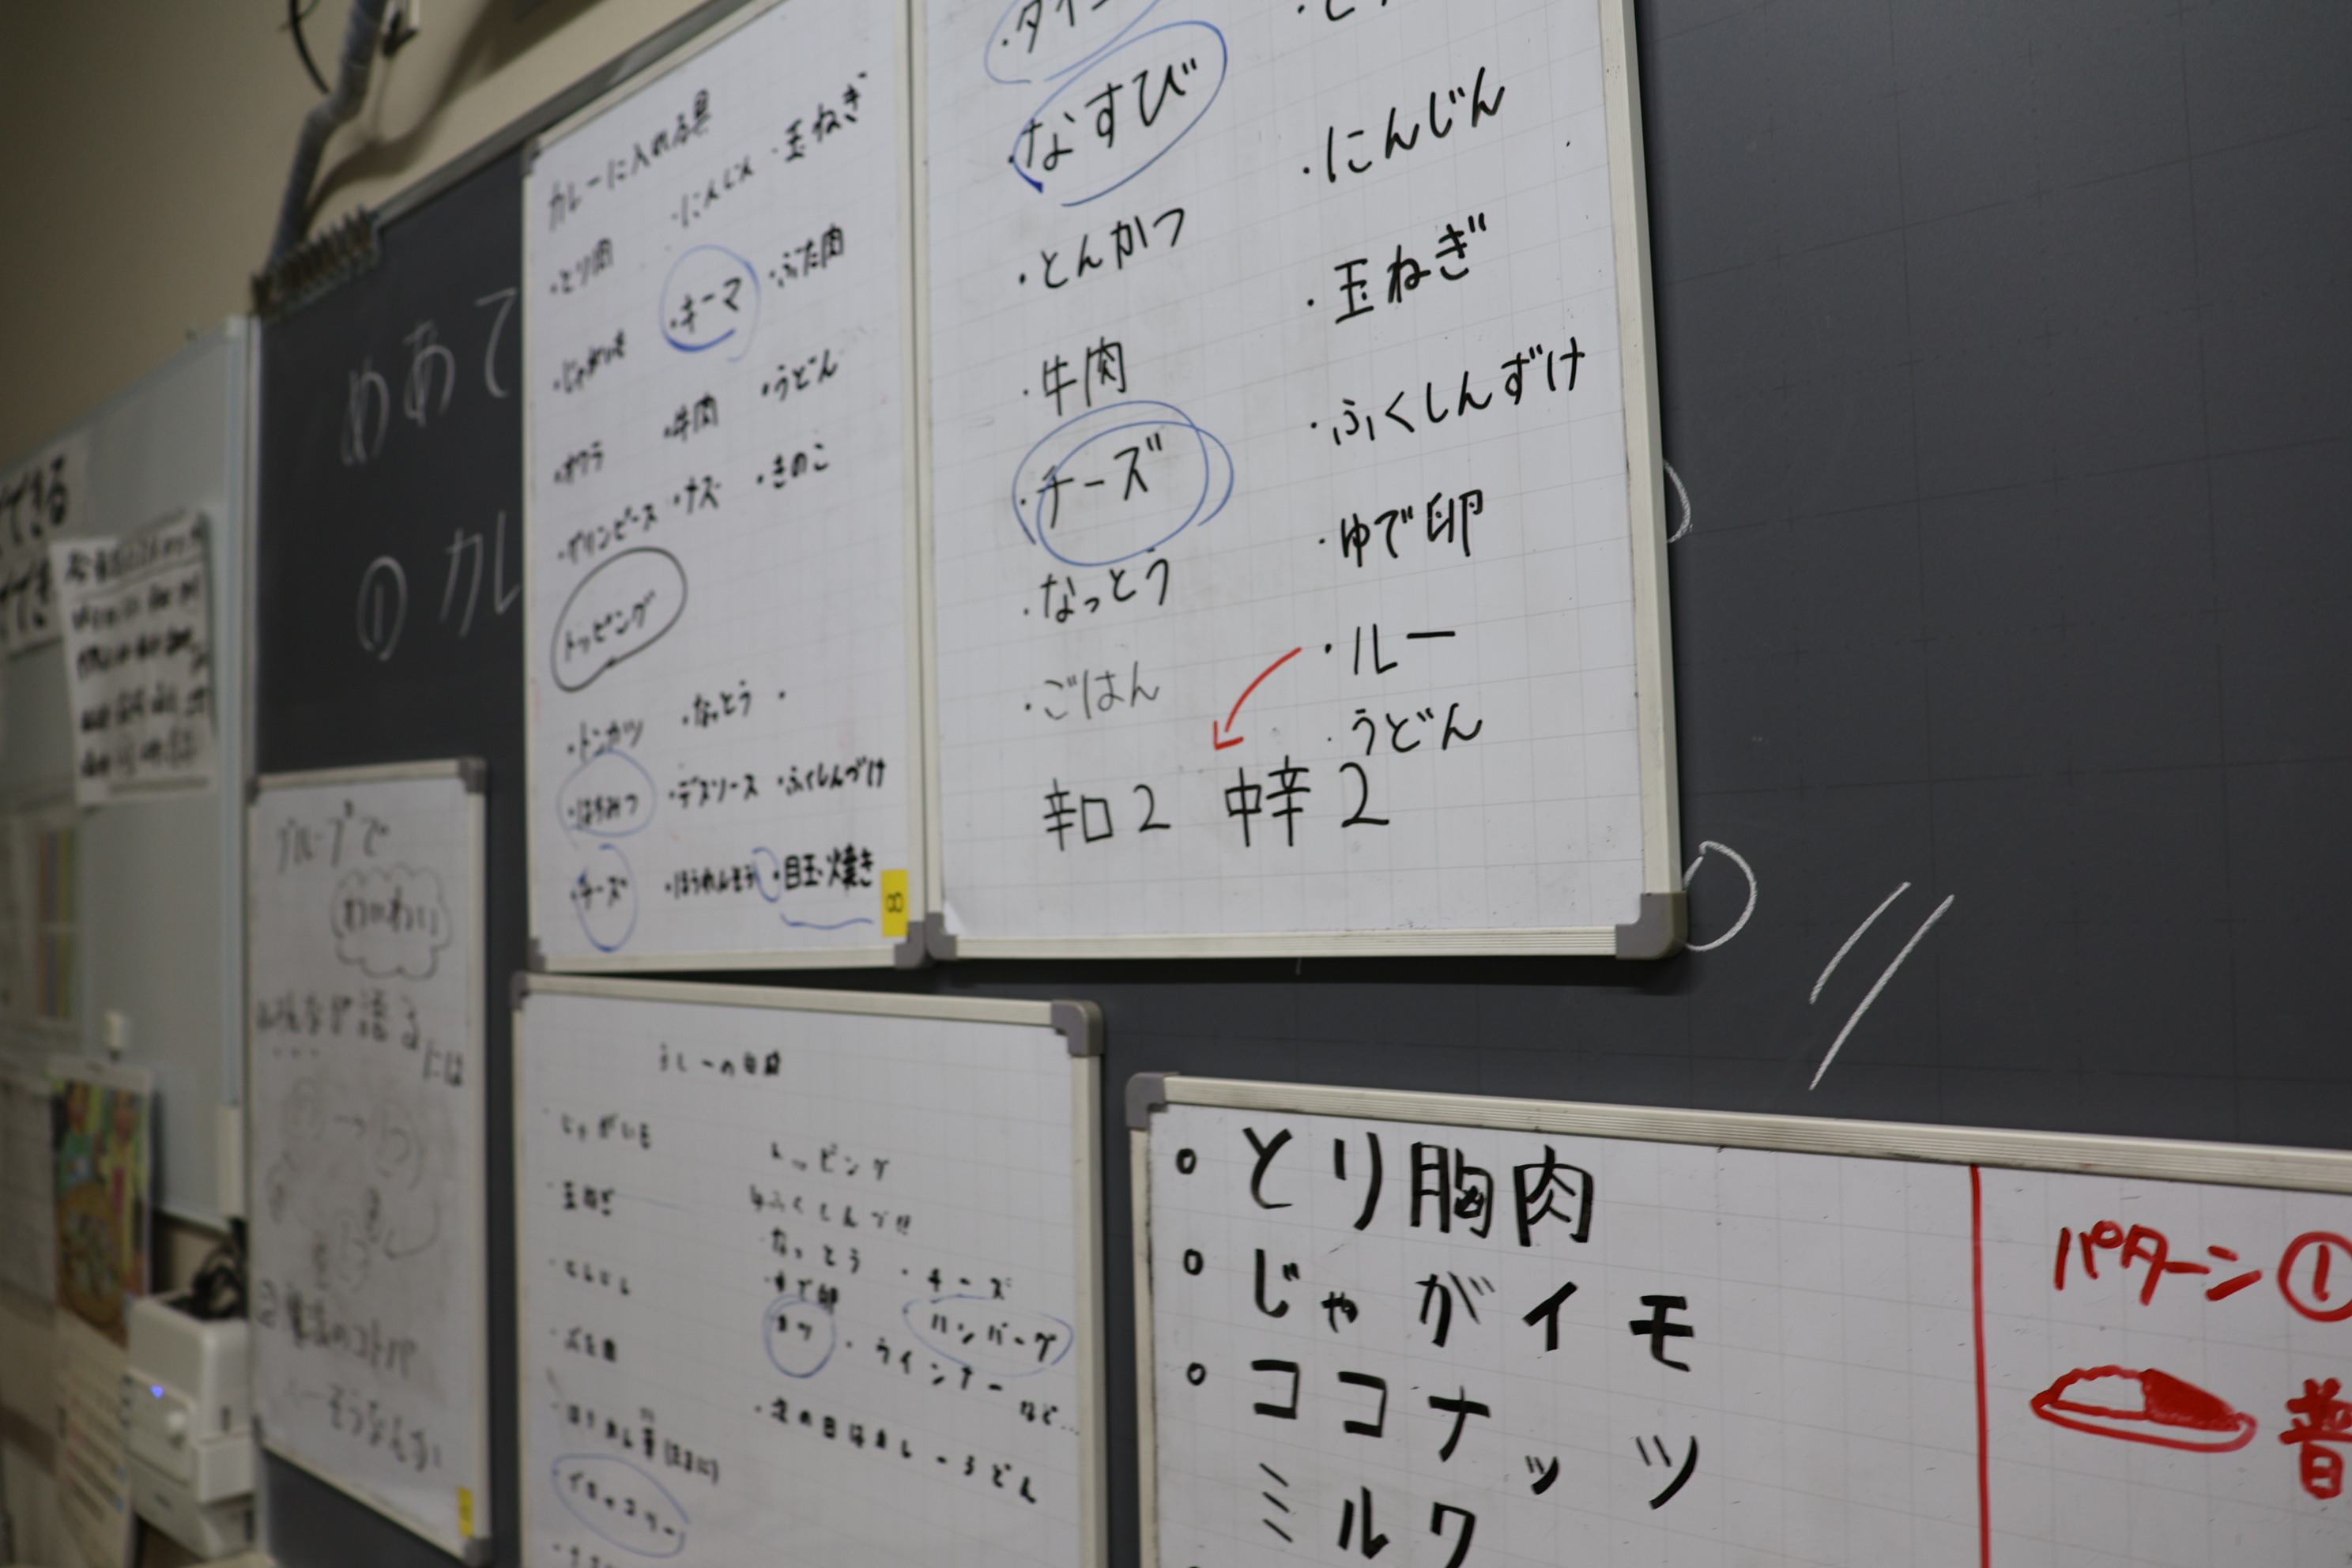 めあて
① カレ
カレーに入れる具
・とり肉 ・にんじん ・玉ねぎ
・じゃがいも ・キーマ ・ぶた肉
・オクラ ・牛肉 ・うどん
・グリンピース ・ナス ・きのこ
トッピング
・トンカツ ・なっとう ・
・はちみつ ・デスソース ・ふくしんづけ
・チーズ ・ほうれんそう ・目玉焼き
8
・なすび
・とんかつ
・牛肉
・チーズ
・なっとう
・ごはん
・にんじん
・玉ねぎ
・ふくしんずけ
・ゆで卵
・ルー
・うどん
辛口2 中辛2
グループで
わいわい
みんなが語るには
・じゃがいも
・玉ねぎ
・にんじん
トッピング
ふくしんづけ
・なっとう ・チーズ
・ゆで卵
カツ ・ハンバーグ
・ウインナー
など…
・次の日はカレーうどん
・ブロッコリー
・とり胸肉
・じゃがイモ
・ココナッツ
ミルク
パターン①
普